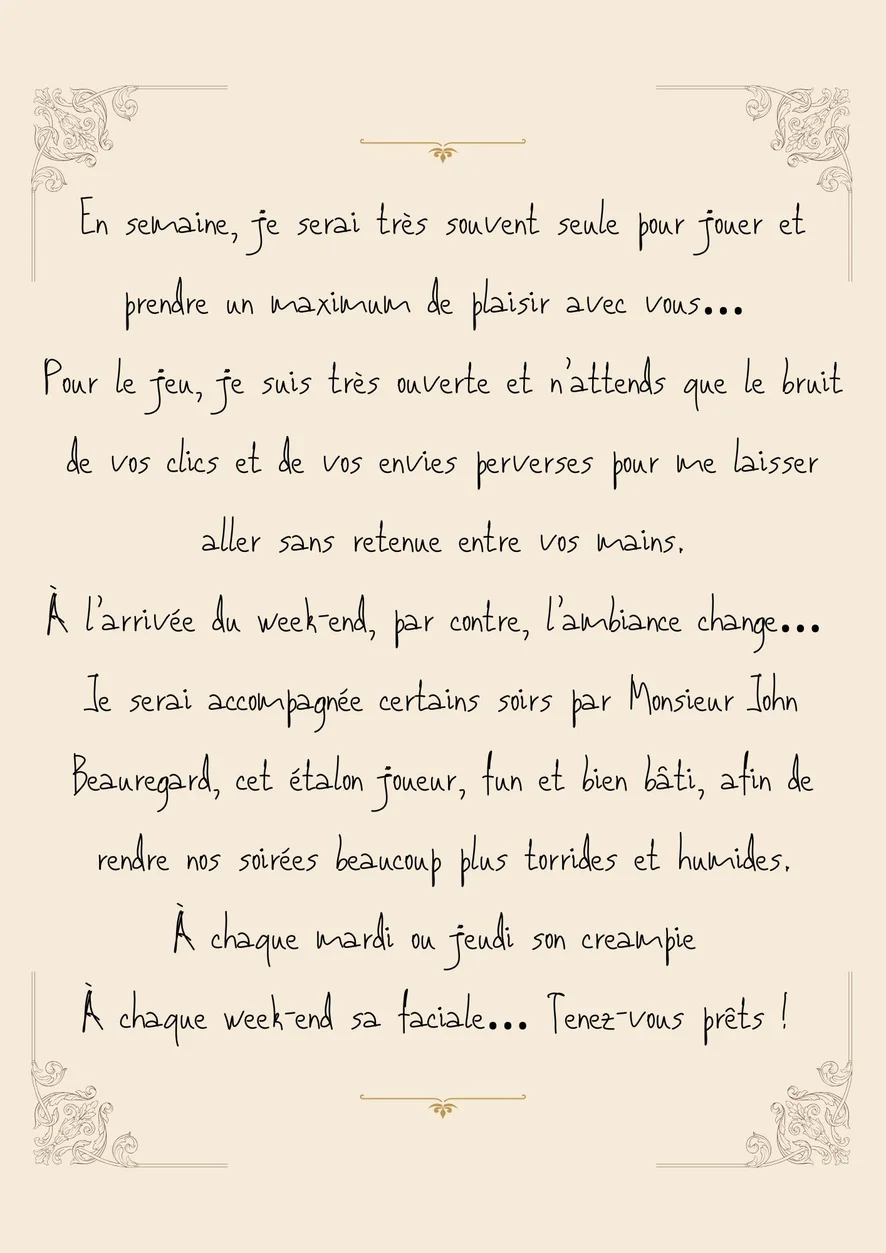 En semaine, je serai très souvent seule pour jouer et
prendre un maximum de plaisir avec vous...
Pour le jeu, je suis très ouverte et n'attends que le bruit
de vos clics et de vos envies perverses pour me laisser
aller sans retenue entre vos mains.
À l'arrivée du week-end, par contre, l'ambiance change...
Je serai accompagnée certains soirs par Monsieur John
Beauregard, cet étalon joueur, fun et bien bâti, afin de
rendre nos soirées beaucoup plus torrides et humides.
À chaque mardi ou jeudi son creampie
À chaque week-end sa faciale... Tenez-vous prêts !